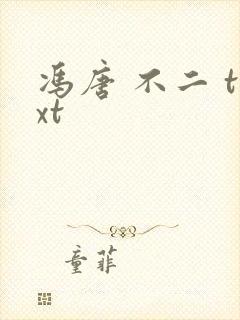 冯唐 不二 t
xt
童菲